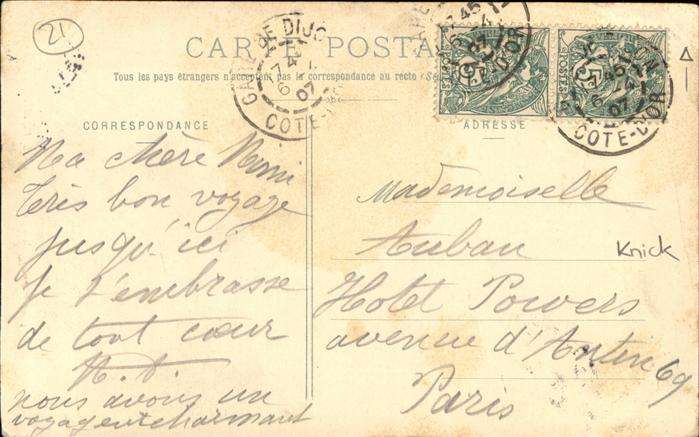 21
CARTE POSTALE
Tous les pays étrangers n'acceptant pas la correspondance au recto (Se
CORRESPONDANCE
ADRESSE
GARE DE DIJON
7 45
6 4
07
COTE-D'OR
POSTES
Ma chère Mimi
Très bon voyage
jusqu'ici
Je t'embrasse
de tout cœur
nous avons un
voyage charmant
Mademoiselle
Auban
Hotel Powers
avenue d'Antin 69
Paris
Knick